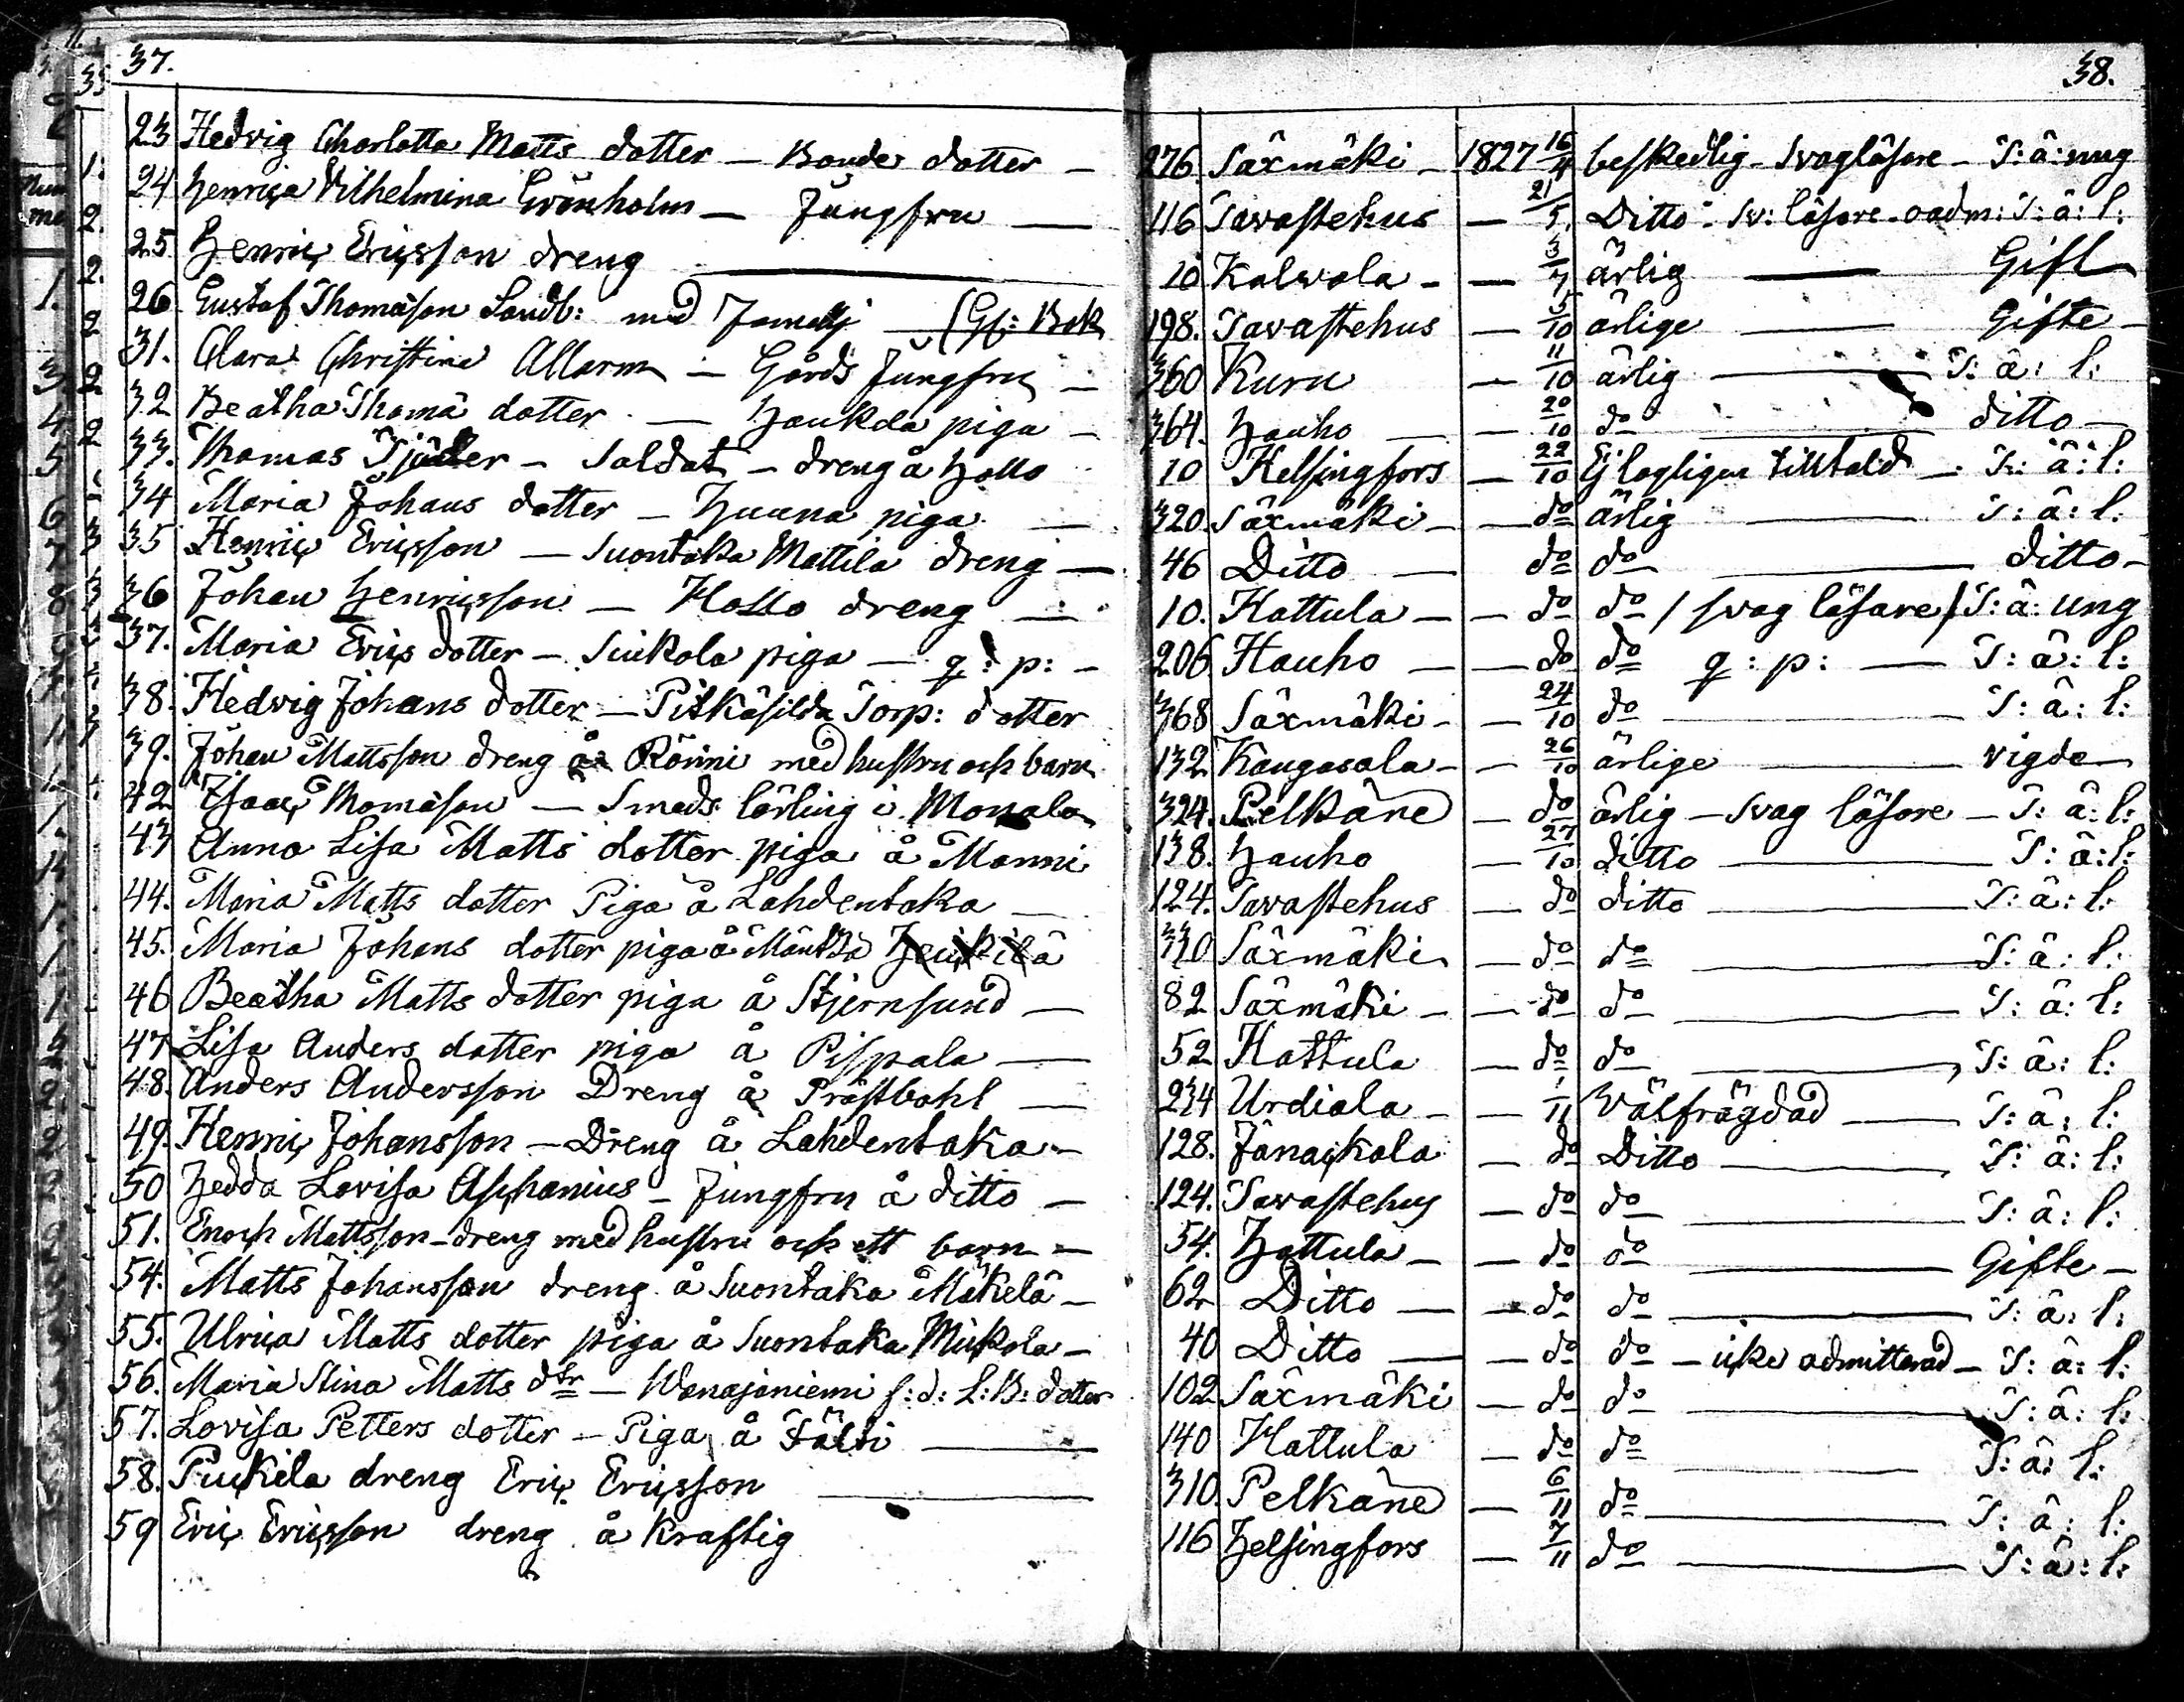 37.
23 Hedvig Charlotta Matts dotter – Bonde dotter –
24 Henrica Vilhelmina Grönholm – Jungfru –
25 Henric Ericsson dreng
26 Gustaf Thomasson Landb: med
31. Clara Christina Allarm – Gårds Jungfru –
32 Beatha Thomä dotter – Haukda piga –
33. Thomas – Soldat – dreng å Hollo
34 Maria Johans dotter – Huuna piga –
35 Henric Ericsson – Suontaka Mattila dreng –
36 Johan Henricsson – Hollo dreng –
37. Maria Erics dotter – Siukola piga – q: p: –
38. Hedvig Johans dotter – Pitkäsilda Torp: dotter
39. Johan Mattsson dreng å Rönni med hustru och barn
42 Isaac Thomasson – Smeds lärling i Monala
43 Anna Lisa Matts dotter piga å Monni
44. Maria Matts dotter Piga å Lahdentaka –
45. Maria Johans dotter piga å Mäntko Heikilä
46 Beatha Matts dotter piga å Stjernsund –
47 Lisa Anders dotter piga å Pispala –
48. Anders Andersson Dreng å Prästbohl –
49. Henric Johansson – Dreng å Lahdentaka –
50 Hedda Lovisa Aschanius – Jungfru å ditto –
51. Enoch Mattsson – dreng med hustru och ett barn –
54. Matts Johansson dreng å Suontaka Mäkelä –
55. Ulrica Matts dotter piga å Suontaka Mickola –
56. Maria Stina Matts dtr – Wanajaniemi f: d: L: B: dotter
57. Lovisa Petters dotter – Piga å Tälli –
58. Puckila dreng Eric Ericsson –
59 Eric Ericsson dreng å Kraftig
38.
276. Säxmäki – 1827 16/4 beskedlig – Svagläsare – T: ä: ung
116 Tavastehus – 21/5. Ditto – Sv: läsare – oadm: T: ä: l:
10 Kalvola – – 3/7 ärlig – Gift
198. Tavastehus – 5/10 ärlige – Gifte –
360 Kuru – 11/10 ärlig – T: ä: l:
364. Hauho – – 20/10 do – ditto –
10 Helsingfors – 22/10 Ej lagligen tilltald – T: ä: l:
320. Säxmäki – – do ärlig – T: ä: l:
46 Ditto – do do – ditto –
10. Hattula – – do do / svag läsare / T: ä: ung
206 Hauho – – do do q: p: – T: ä: l:
368 Säxmäki – – 24/10 do – T: ä: l:
132 Kangasala – – 26/10 ärlige – vigde
324. Pelkäne – do ärlig – svag läsare – T: ä: l:
138. Hauho – 27/10 ditto – T: ä: l:
124. Tavastehus – do ditto – T: ä: l:
310 Säxmäki – do do – T: ä: l:
82 Säxmäki – – do do – T: ä: l:
52 Hattula – do do – T: ä: l:
234 Urdiala – – 1/11 Välfrägdad – T: ä: l:
128. Janackala – do Ditto – T: ä: l:
124. Tavastehus – do do – T: ä: l:
54. Hattula – – do do – Gifte –
62 Ditto – – do do – T: ä: l:
40 Ditto – – do do – icke admitterad – T: ä: l:
102 Säxmäki – do do – T: ä: l:
140 Hattula – do do – T: ä: l:
310. Pelkäne – 6/11 do – T: ä: l:
116 Helsingfors – 7/11 do – T: ä: l: